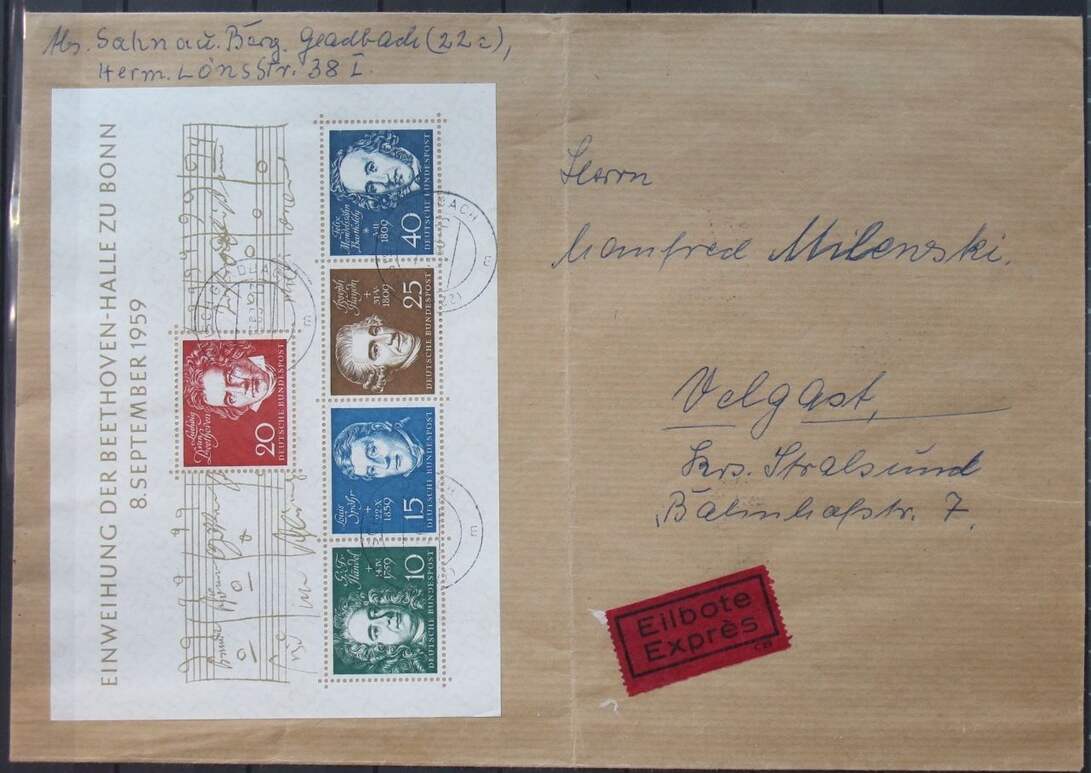 Abs. Sahnau. Berg. Gladbach (22c),
Herm. Löns Str. 38 I.
EINWEIHUNG DER BEETHOVEN-HALLE ZU BONN
8. SEPTEMBER 1959
Felix
Mendelssohn
Bartholdy
* 3·II·
1809
40
DEUTSCHE BUNDESPOST
Joseph
Haydn
+
31·V·
1809
25
DEUTSCHE BUNDESPOST
Ludwig
van
Beethoven
20
DEUTSCHE BUNDESPOST
Louis
Spohr
+
22·X·
1859
15
DEUTSCHE BUNDESPOST
G. F.
Händel
+
14·IV·
1759
10
DEUTSCHE BUNDESPOST
Herrn
Manfred Milewski.
Velgast,
Krs. Stralsund
Bahnhofstr. 7.
Eilbote
Exprès